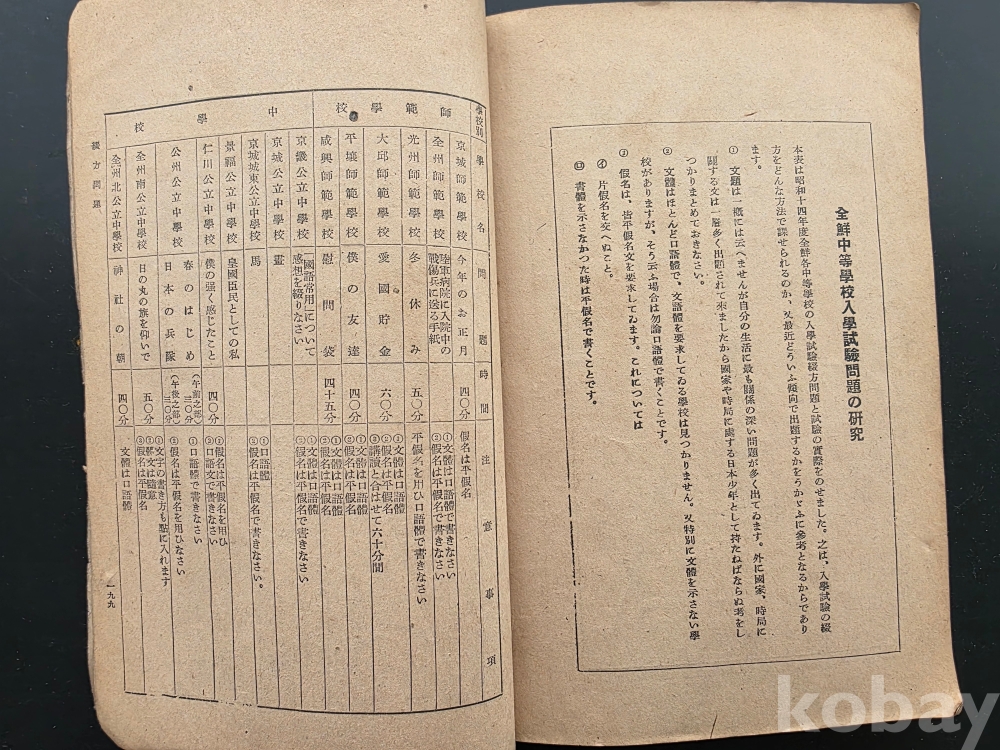 全鮮中等學校入學試驗問題の研究
本表は昭和十四年度全鮮各中等學校の入學試驗綴方問題と試驗の實際をのせました。之は、入學試驗の綴
方をどんな方法で課せられるのか、又最近どういふ傾向で出題するかをうかゞふに參考となるからであり
ます。
① 文題は一概には云へませんが自分の生活に最も關係の深い問題が多く出てゐます。外に國家、時局に
關する文は一層多く出題されて來ましたから國家や時局に處する日本少年として持たねばならぬ考をし
つかりまとめておきなさい。
② 文體はほとんど口語體で、文語體を要求してゐる學校は見つかりません。又特別に文體を示さない學
校がありますが、そう云ふ場合は勿論口語體で書くことです。
③ 假名は、皆平假名文を要求してゐます。これについては
㋑ 片假名を交へぬこと。
㋺ 書體を示さなかつた時は平假名で書くことです。
學校別 學校名 問題 時間 注意事項
師範學校
京城師範學校 今年のお正月 四〇分 假名は平假名
全州師範學校 陸軍病院に入院中の
戰傷兵に送る手紙 ①文體は口語體で書きなさい
②假名は平假名で書きなさい
光州師範學校 冬休み 五〇分 平假名を用ひ口語體で書きなさい
大邱師範學校 愛國貯金 六〇分 ①文體は口語體
②假名は平假名
③講讀と合はせて六十分間
平壤師範學校 僕の友達 四〇分 ①文體は口語體
②假名は平假名
咸興師範學校 慰問袋 四十五分 ①文體は口語體
②假名は平假名
中學校
京畿公立中學校 「國語常用」について
感想を綴りなさい ①文體は口語體
②假名は平假名で書きなさい
京城公立中學校 畫
京城城東公立中學校 馬 ①口語體
②假名は平假名で書きなさい。
景福公立中學校 皇國臣民としての私
仁川公立中學校 僕の强く感じたこと 四〇分 ①假名は平假名を用ひ
②口語文で書きなさい
公州公立中學校 春のはじめ (午前之部)三〇分
日本の兵隊 (午後之部)三〇分 ①口語體で書きなさい
②假名は平假名を用ひなさい
全州南公立中學校 日の丸の旗を仰いで 五〇分 ①文字の書き方も點に入れます
②文は隨意
③假名は平假名
全州北公立中學校 神社の朝 四〇分 文體は口語體
綴方問題
一九九
kobay